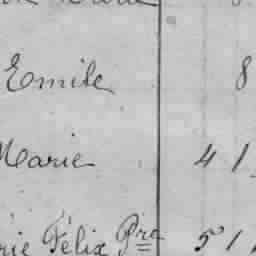 Emile 8
Marie 41
Félix Pre 51